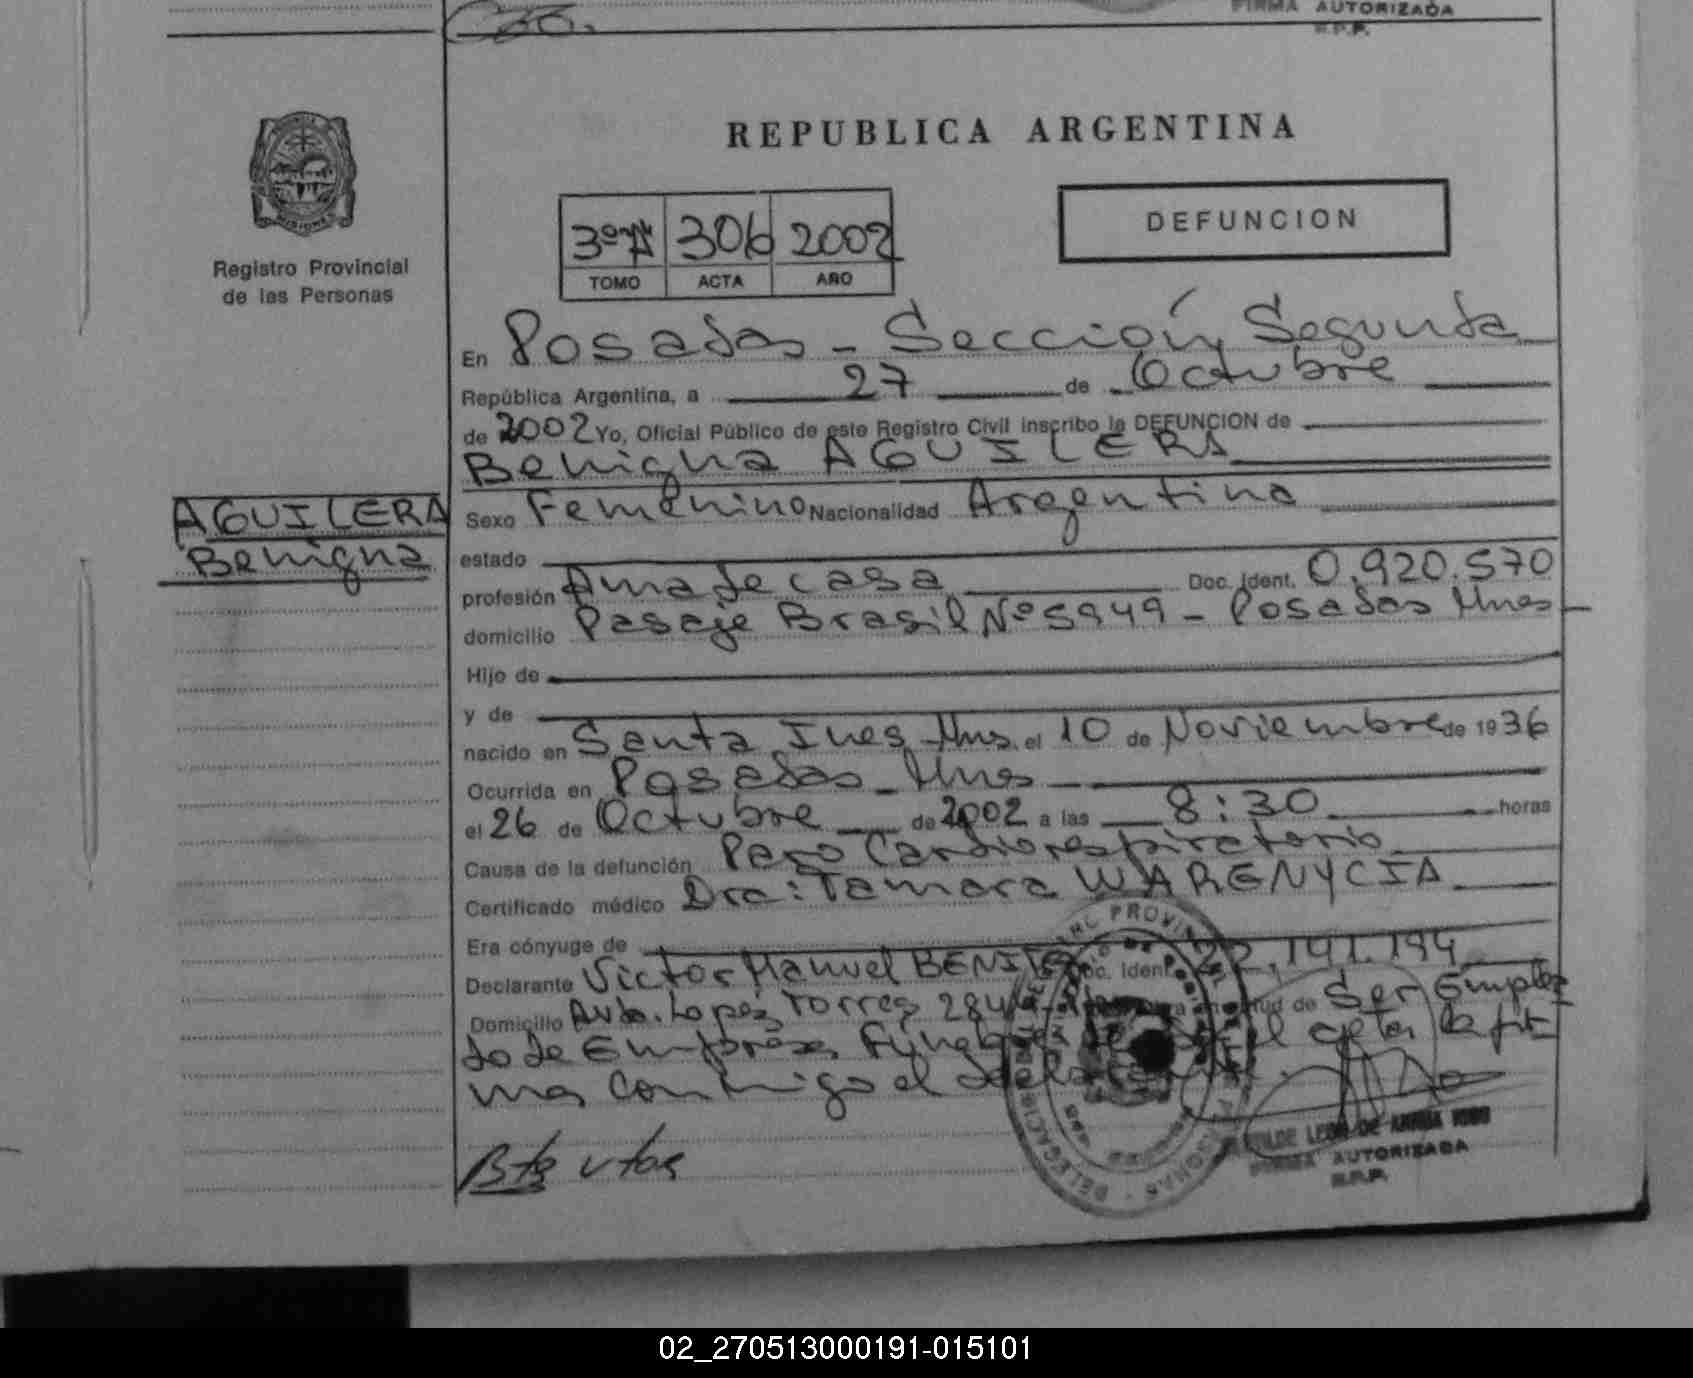 FIRMA AUTORIZADA
R.P.P.
MISIONES
Registro Provincial
de las Personas
REPUBLICA ARGENTINA
3º"A" 306 2002
TOMO ACTA AÑO
DEFUNCION
En Posadas - Sección Segunda
República Argentina, a 27 de Octubre
de 2002 Yo, Oficial Público de este Registro Civil inscribo la DEFUNCION de
Benigna AGUILERA
AGUILERA
Benigna
Sexo Femenino Nacionalidad Argentina
estado
profesión Ama de casa Doc. Ident. 0.920.570
domicilio Pasaje Brasil Nº 5949 - Posadas Mnes
Hijo de
y de
nacido en Santa Ines Mns. el 10 de Noviembre de 1936
Ocurrida en Posadas - Mnes
el 26 de Octubre de 2002 a las 8:30 horas
Causa de la defunción Paro Cardiorespiratorio
Certificado médico Dra: Tamara WARENYCIA
Era cónyuge de
Declarante Victor Manuel BENITEZ Doc. Ident. 22.141.194
Domicilio Avda. Lopez Torres en virtud de Ser Emplea
do de Empresa Fúnebre la fir
ma conmigo el
Bta vtas
AUTORIZADA
R.P.P.
02_270513000191-015101